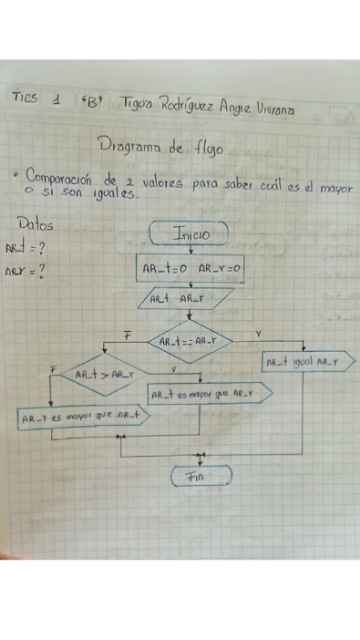 TICS 1 "B" Tigua Rodríguez Angie Viviana
Diagrama de flujo
• Comparación de 2 valores para saber cuál es el mayor
o si son iguales.
Datos
AR_t = ?
AR_r = ?
Inicio
AR_t=0 AR_r=0
AR_t AR_r
AR_t == AR_r
F
V
AR_t igual AR_r
AR_t > AR_r
F
V
AR_t es mayor que AR_r
AR_r es mayor que AR_t
Fin